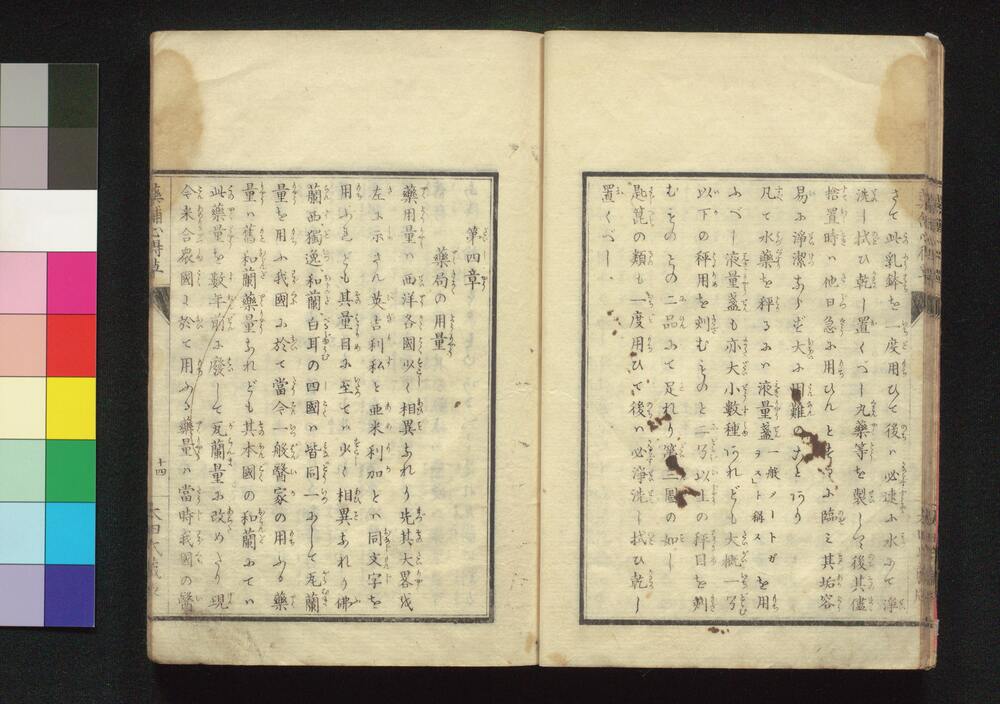 さて此乳鉢を一度用ひて後ハ必速ふ水ふて浄
洗し拭ひ乾し置くべし丸藥等を製しゝ後其儘
捨置時ハ他日急ふ用ひんと臨ミ其垢容
易ふ淨潔ふらず大ふ困難のことあり
凡て水藥を秤るふハ液量盞一般ノートガラスト稱スを用
ふべし液量盞も亦大小數種あれども大概一匁
以下の秤用を刻むものと二匁以上の秤目を刻
むものとの二品ふて足れり第三圖の如し
匙篦の類も一度用ひて後ハ必淨洗し拭ひ乾し
置くべし
第四章
藥局の用量
藥用量ハ西洋各國少く相異なれり先其大畧を
左ふ示さん英吉利私と亜米利加とハ同文字を
用ふれども其量目ふ至てハ少く相異なれり佛
蘭西獨逸和蘭白耳の四國ハ皆同一ふして瓦蘭
量を用ふ我國ふ於て當今一般醫家の用ふる藥
量ハ舊和蘭藥量なれども其本國の和蘭ふてハ
此藥量を數年前ふ發して瓦蘭量ふ改めたり現
今米合衆國ふ於て用ふる藥量ハ當時我國の醫
藥鋪心得草
十四